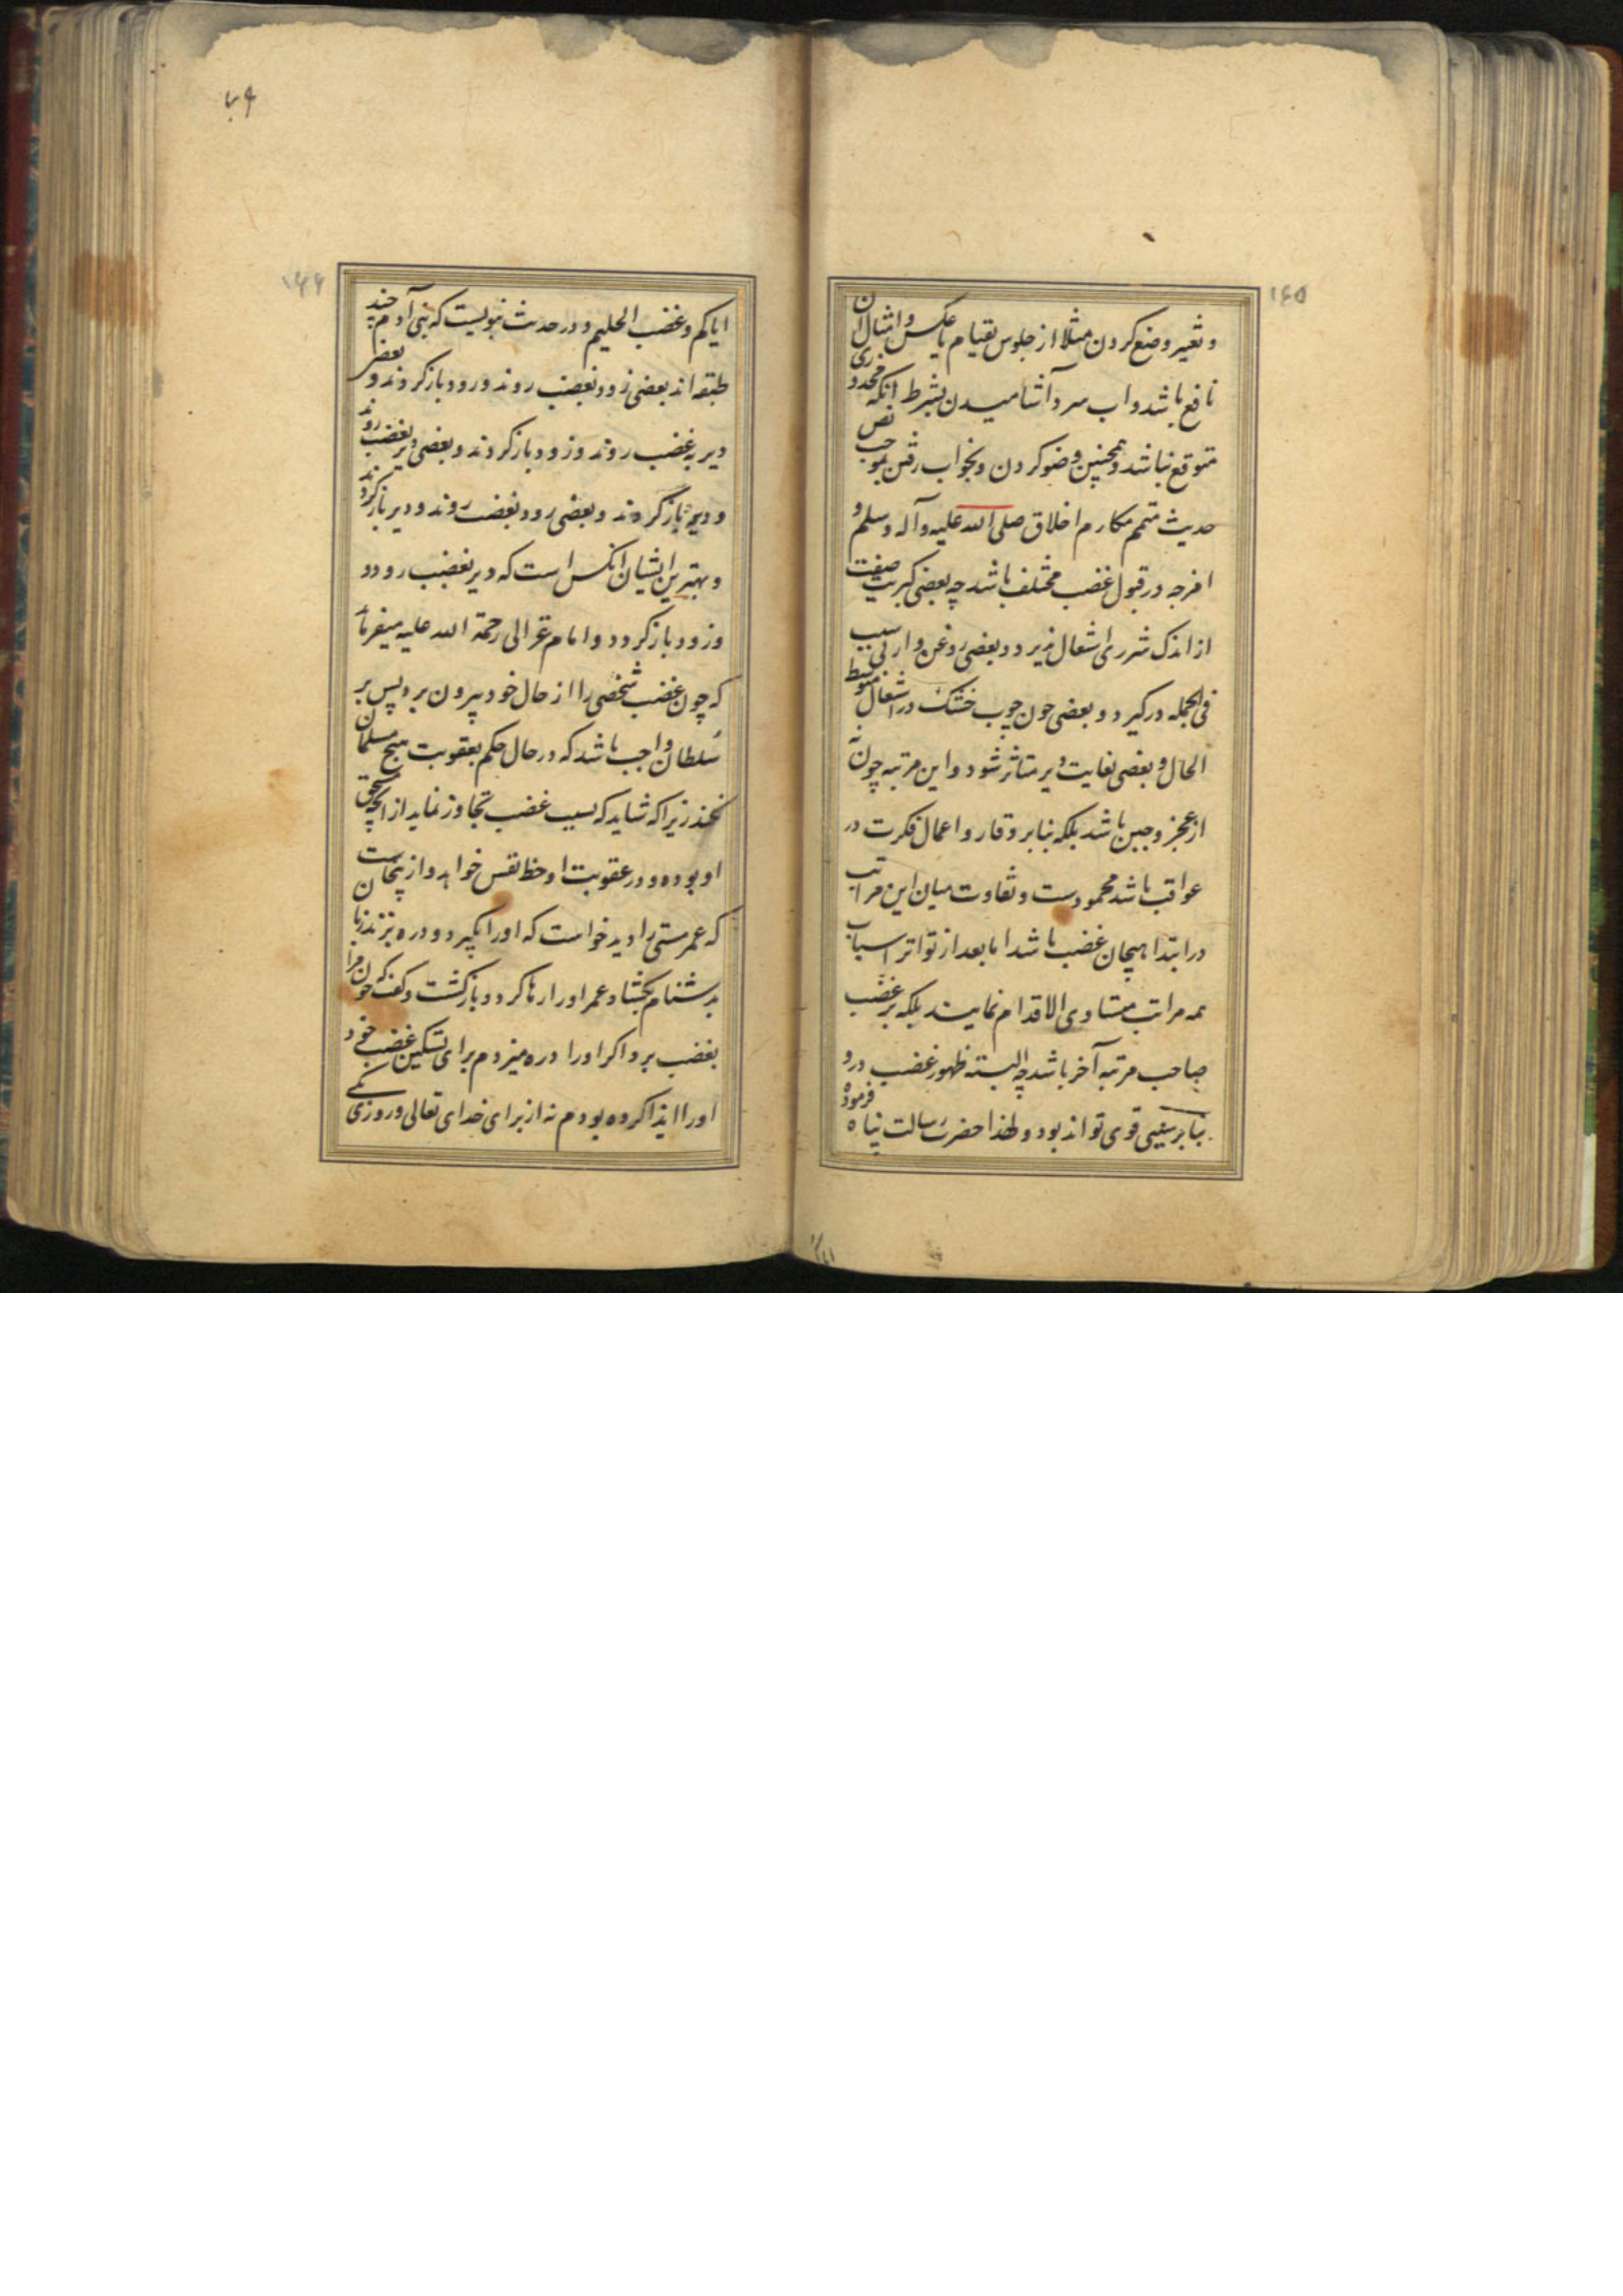 ۱۴۵
و تغیر وضع کردن مثلا از جلوس بقیام یا عکس و امثال آن
نافع باشد و اب سرد آشامیدن بشرط انکه محذوری
متوقع نباشد و همچنین وضو کردن و بخواب رفتن بموجب نص
حدیث متمم مکارم اخلاق صلی الله علیه و آله و سلم و
امزجه در قبول غضب مختلف باشد چه بعضی کبریت صفت
از اندک شرری اشتعال پذیرد و بعضی روغن وار بسبب
فی الجمله درکیرد و بعضی چون چوب خشک در اشتعال متوسط
الحال و بعضی بغایت دیر متاثر شود و این مرتبه چون نه
از عجز و جبن باشد بلکه بنابر وقار و اعمال فکرت در
عواقب باشد محمودست و تفاوت میان این مراتب
در ابتدا هیجان غضب باشد اما بعد از تواتر اسباب
همه مراتب متساوی الاقدام نمایند بلکه بر غضب
صاحب مرتبه آخر باشد چه البته ظهور غضب درو
بنابر سببی قوی تواند بود و لهذا حضرت رسالت پناه فرموده
۷۹
۱۴۶
ایاکم و غضب الحلیم و در حدیث نبویست که بنی آدم چند
طبقه اند بعضی زود بغضب روند و زود باز کردند و بعضی
دیر به غضب روند و زود باز کردند و بعضی دیر بغضب روند
و دیر باز کردند و بعضی زود بغضب روند و دیر باز کردند
و بهترین ایشان انکس است که دیر بغضب رود
و زود باز کردد و امام غزالی رحمة الله علیه میفرماید
که چون غضب شخصی را از حال خود بیرون برد پس بر
سُلطان واجب باشد که در حال حکم بعقوبت هیچ مسلمان
نکند زیرا که شاید که بسبب غضب تجاوز نماید از انچه مستحق
او بوده و در عقوبت او حظ نفس خواهد و از پنجاست
که عمر مستی را دید خواست که او را بکیرد و دره بزند زبان
بدشنام بکشاد عمر او را رها کرد و بازکشت و کفت که چون مرا
بغضب برد اکر او را دره میزدم برای تسکین غضب خود
او را ایذا کرده بودم نه از برای خدای تعالی و روزی یکی